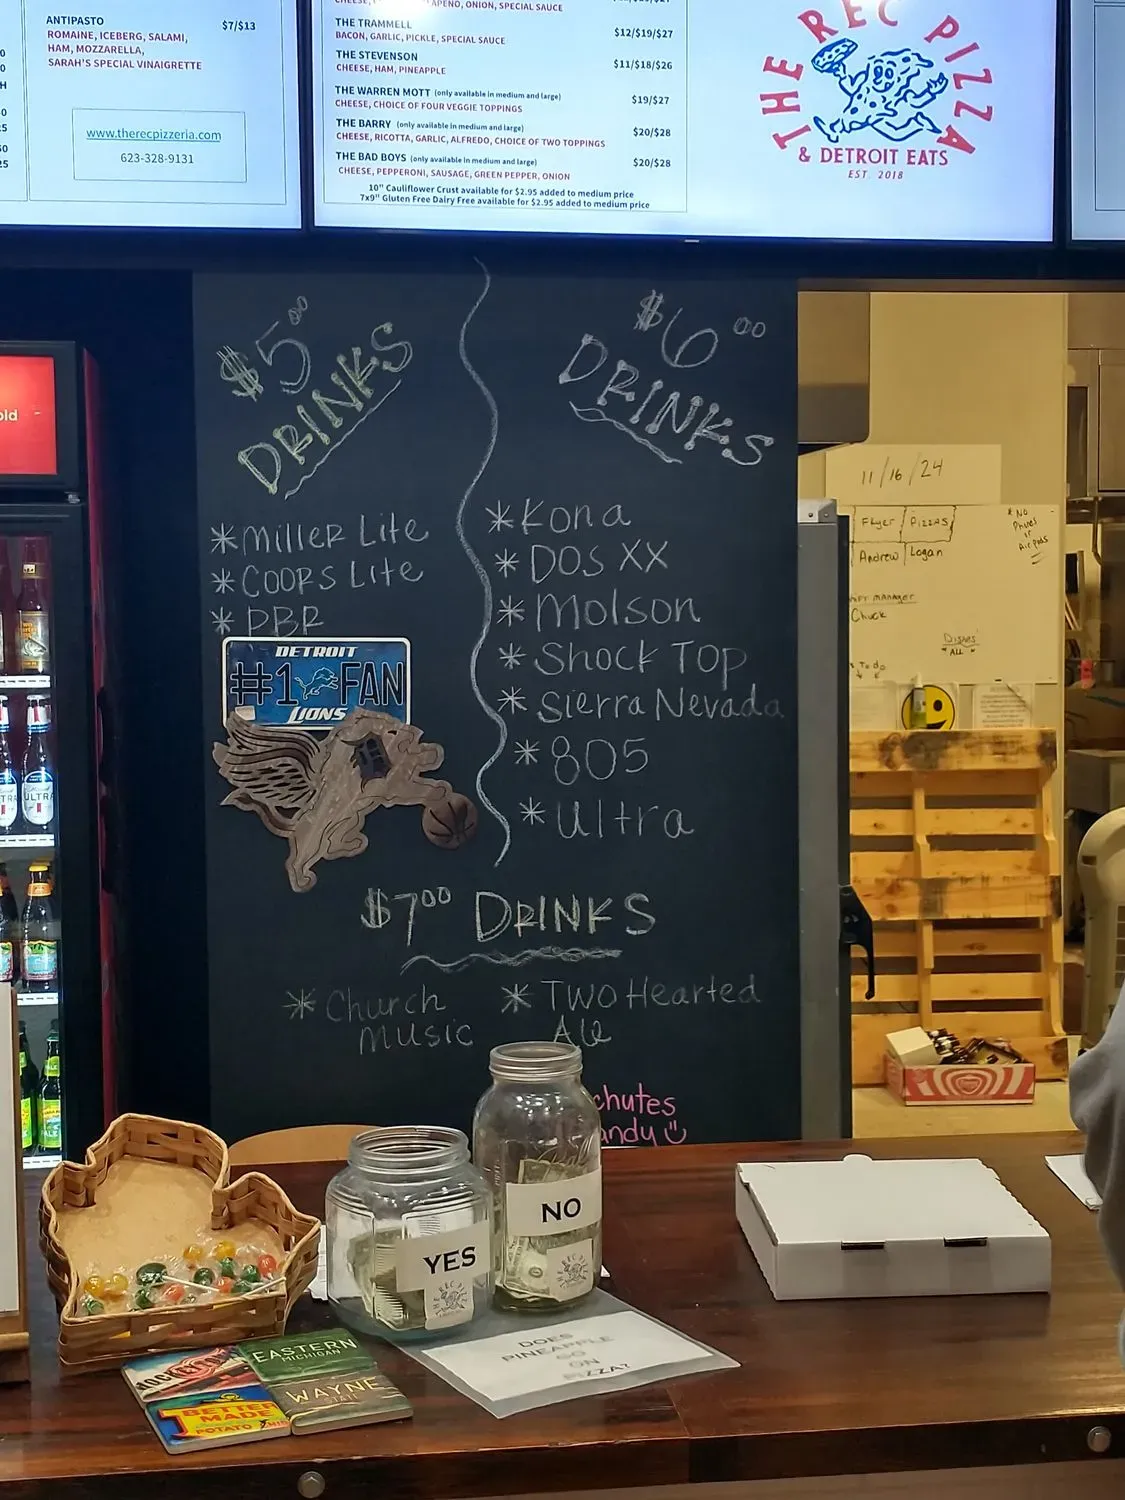 ANTIPASTO $7/$13
ROMAINE, ICEBERG, SALAMI,
HAM, MOZZARELLA,
SARAH'S SPECIAL VINAIGRETTE
www.therecpizzeria.com
623-328-9131
ONION, SPECIAL SAUCE
THE TRAMMELL $12/$19/$27
BACON, GARLIC, PICKLE, SPECIAL SAUCE
THE STEVENSON $11/$18/$26
CHEESE, HAM, PINEAPPLE
THE WARREN MOTT (only available in medium and large) $19/$27
CHEESE, CHOICE OF FOUR VEGGIE TOPPINGS
THE BARRY (only available in medium and large) $20/$28
CHEESE, RICOTTA, GARLIC, ALFREDO, CHOICE OF TWO TOPPINGS
THE BAD BOYS (only available in medium and large) $20/$28
CHEESE, PEPPERONI, SAUSAGE, GREEN PEPPER, ONION
10" Cauliflower Crust available for $2.95 added to medium price
7x9" Gluten Free Dairy Free available for $2.95 added to medium price
THE REC PIZZA
& DETROIT EATS
EST. 2018
$5.00
DRINKS
* Miller Lite
* COORS Lite
* PBR
$6.00
DRINKS
* Kona
* DOS XX
* Molson
* Shock Top
* Sierra Nevada
* 805
* Ultra
DETROIT
#1 FAN
LIONS
$7.00 DRINKS
* Church
music
* Two Hearted
Ale
chutes
andy
11/16/24
Flyer PIZZAS
Andrew Logan
* NO
Phones
or
Air pods
MANAGER
Chuck
Dishes
"ALL"
* To do
ULTRA
YES
NO
THE REC PIZZA
DOES
PINEAPPLE
GO
ON
PIZZA?
EASTERN
MICHIGAN
WAYNE
STATE
BETTER
MADE
POTATO CHIPS